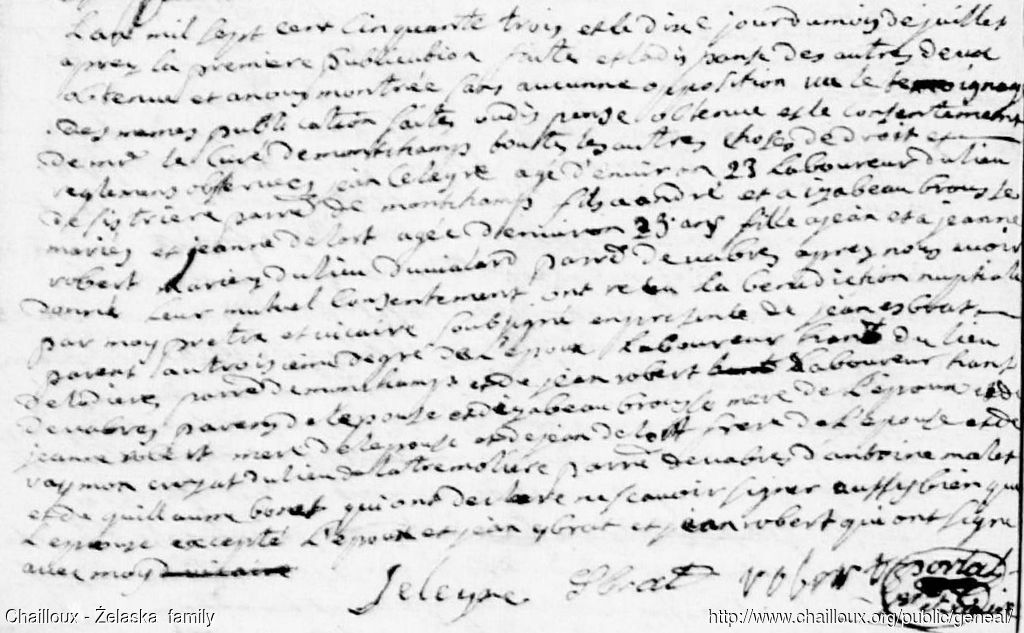 L'an mil sept cent cinquante trois et le dixe jour du mois de juillet
aprez la premiere publication faite et la dispanse des autres deux
obtenue et a nous montrée sans aucunne opposition vu le temoignage
des memes publications faites, dispense obtenue et le consentement
de mr le curé de montchamp toutes les autres choses de droit et
reglemens observées jean Celeyre agé d'environ 23 laboureur du lieu
de sistrieres parre de montchamp fils a andré et a izabeau brousse
mariez et jeanne delort agée d'environ 25 ans fille a jean et a jeanne
robert mariez du lieu du vialard parre de vabres aprez nous avoir
donné leur mutuel consentement ont reçu la benediction nuptiale
par moy pretre et vicaire soussigné en presence de jean esbrat
parent au troisieme degré de l'epoux laboureur hant du lieu
de parre de montchamp et de jean robert laboureur hant
de vabres parent de l'epouse et d'izabeau brousse mere de l'epoux et de
jeanne robert mere de l'epouse et de jean delort frere de l'epouse et de
raymon du lieu de la tremoliere parre de vabres d'antoine malet
et de guillaume bonet qui ont declaré ne scavoir signer aussy bien que
l'epouse excepté l'epoux et jean ybrat et jean robert qui ont signé
avec moy vicaire
Seleyre Ebrat robert portal
Chailloux - Żelaska family
http://www.chailloux.org/public/geneal/